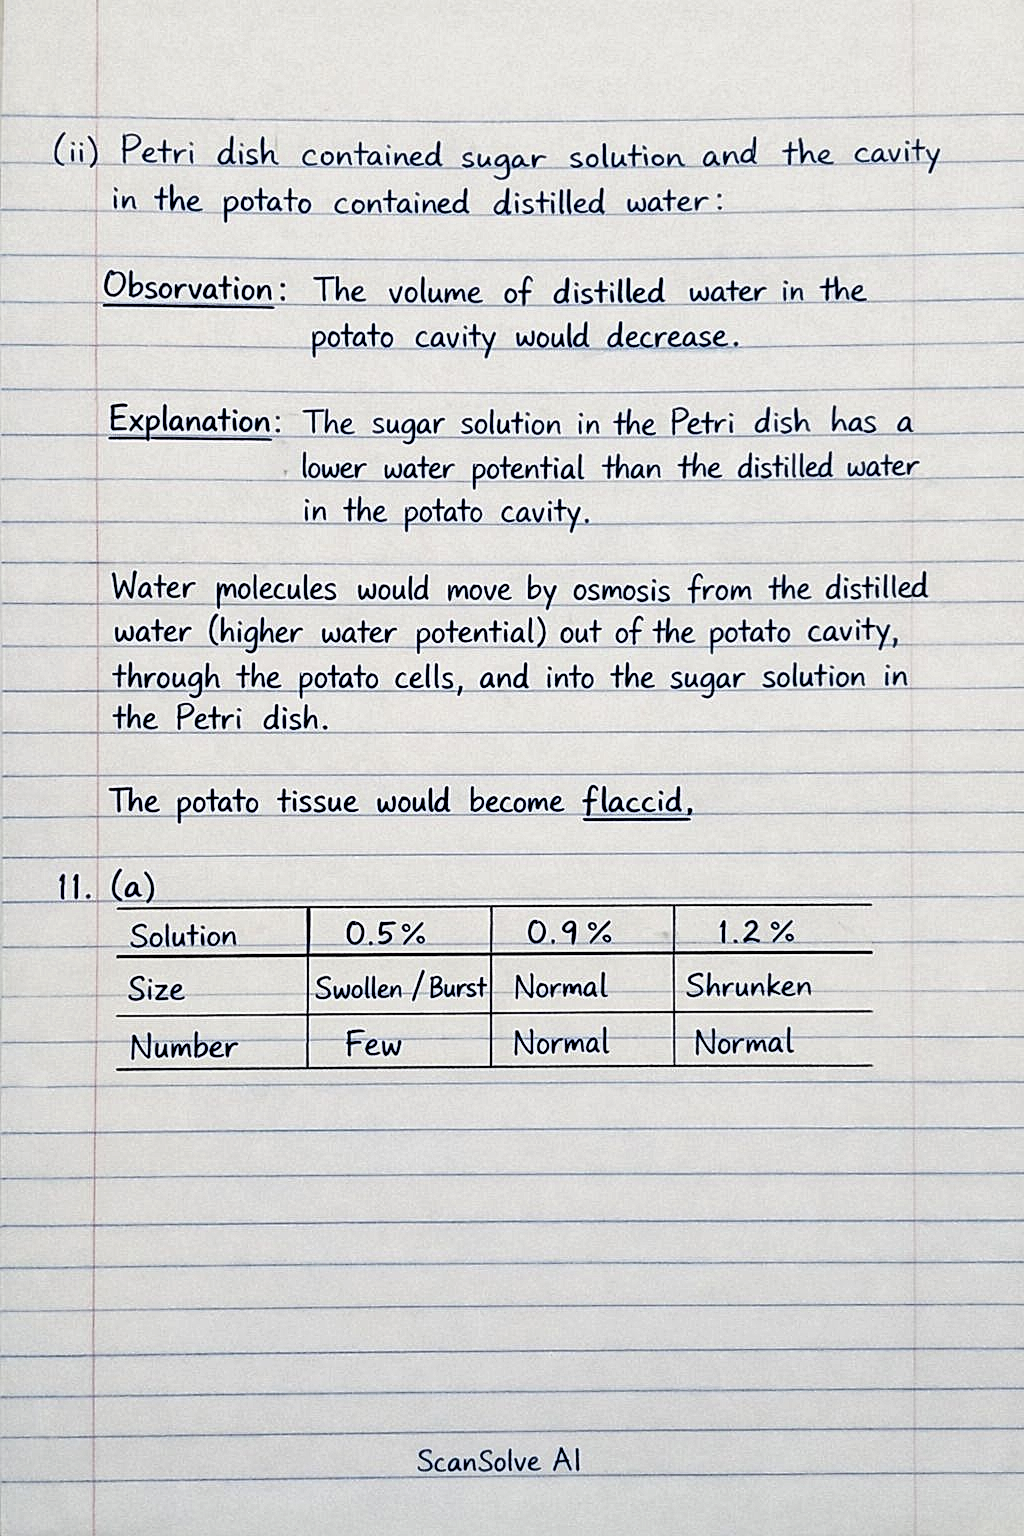 (ii) Petri dish contained sugar solution and the cavity
in the potato contained distilled water:
Obsorvation: The volume of distilled water in the
potato cavity would decrease.
Explanation: The sugar solution in the Petri dish has a
lower water potential than the distilled water
in the potato cavity.
Water molecules would move by osmosis from the distilled
water (higher water potential) out of the potato cavity,
through the potato cells, and into the sugar solution in
the Petri dish.
The potato tissue would become flaccid,
11. (a)
Solution 0.5% 0.9% 1.2%
Size Swollen / Burst Normal Shrunken
Number Few Normal Normal
ScanSolve AI